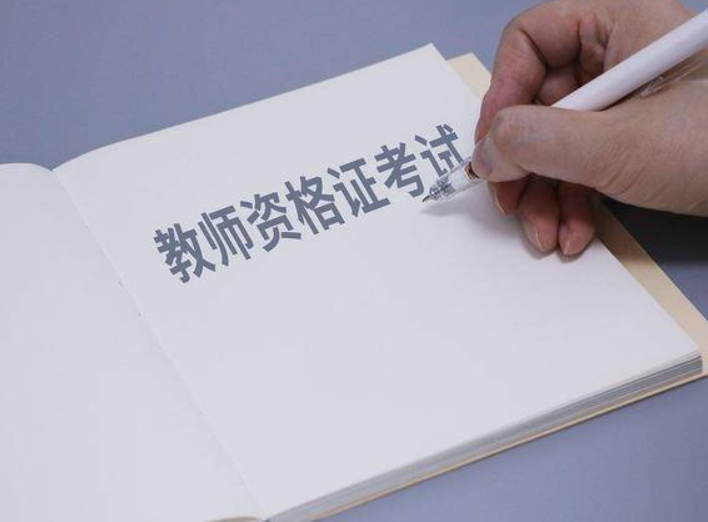 教师资格证考试